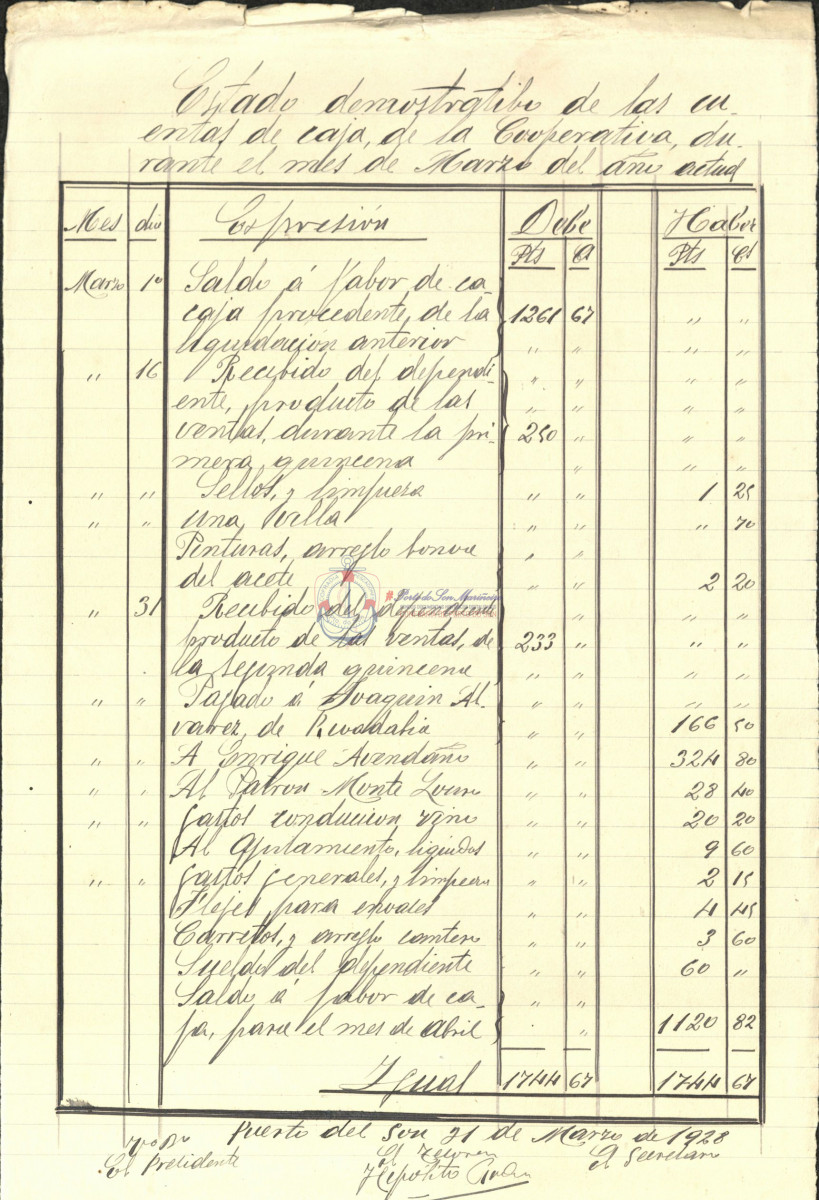 Estado demostratibo de las cu-
entas de caja, de la Cooperativa, du-
rante el mes de Marzo del año actual
Mes dia Espresión Debe Haber
Pts Ct Pts Ct
Marzo 1º Saldo á fabor de ca-
caja procedente, de la 1261 67 " "
liquidación anterior " " " "
" 16 Recibido del dependi- " " " "
ente, producto de las " " " "
ventas, durante la pri- 250 " " "
mera quincena " " "
" " Sellos, y limpieza " " 1 25
" " una villa " " " 70
Pinturas, arreglo " "
del aceite " " 2 20
" 31 Recibido del dependiente " " "
producto de las ventas, de 233 " " "
la segunda quincena " " " "
" " Pagado á Joaquin Al- " " " "
varez, de Rivadabia " " 166 50
" " A Enrique Avendaño " " 324 80
" " Al Patron Monte Louro " " 28 40
" " gastos conduccion vino " " 20 20
Al Ajutamiento, liquidos " " 9 60
" " gastos generales, y limpieza " " 2 15
Flejes, para envases " " 4 45
Carretos, y arreglo " " 3 60
Sueldo del dependiente " " 60 "
Saldo á fabor de ca- " "
ja, para el mes de abril " 1120 82
Igual 1744 67 1744 67
Puerto del Son 31 de Marzo de 1928
Vº Bº
El Presidente El Tesorero El Secretario
Hipolito
Porto do Son Mariñeiro